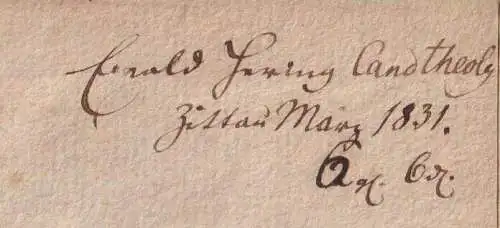 Ewald Hering Cand theolg
Zittau März 1831.
6 gl. 6 d.